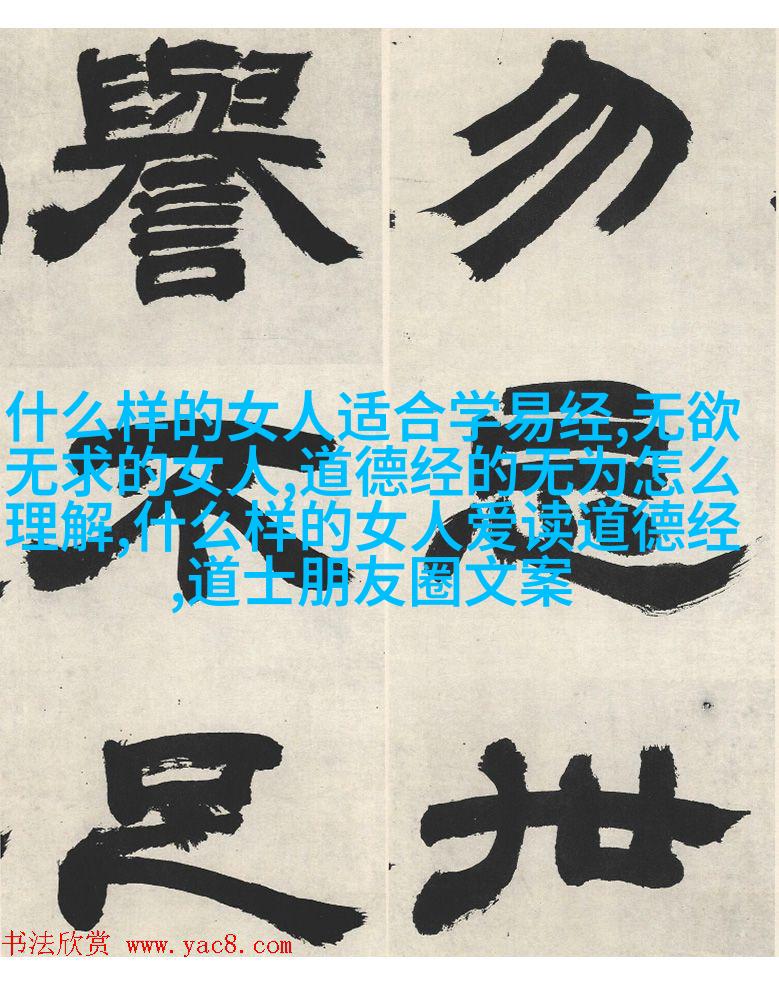 勿忘世
譽不足
什么样的女人适合学易经,无欲
无求的女人,道德经的无为怎么
理解,什么样的女人爱读道德经
,道士朋友圈文案
书法欣赏 www.yac8.com